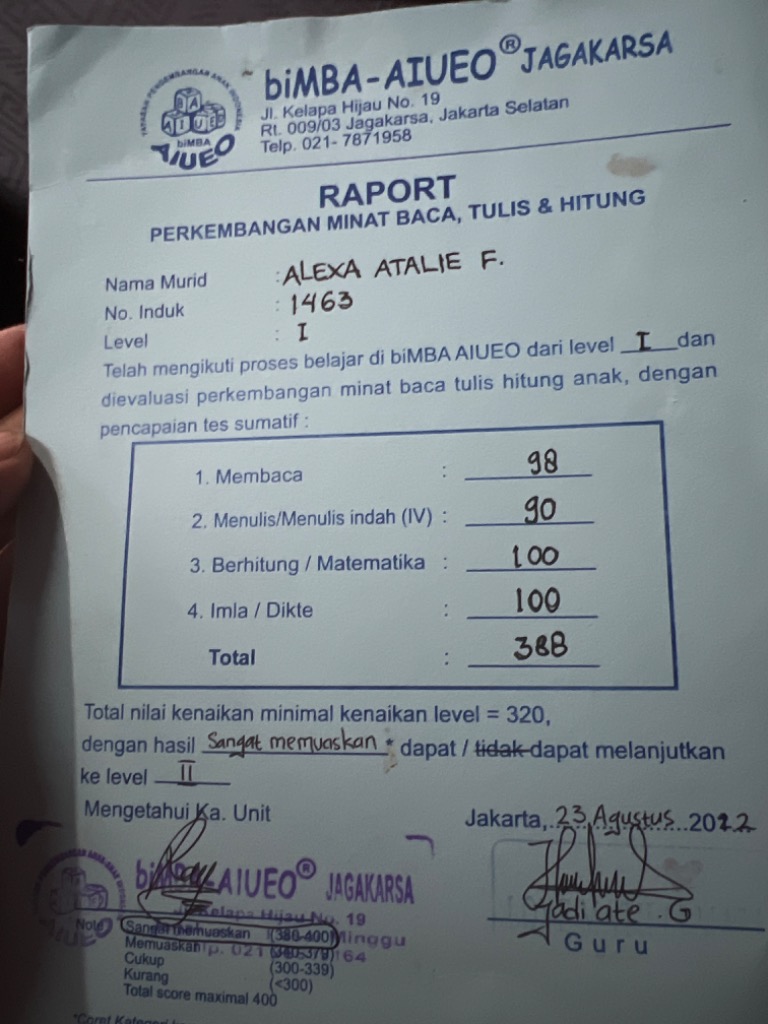 biMBA-AIUEO® JAGAKARSA
Jl. Kelapa Hijau No. 19
Rt. 009/03 Jagakarsa, Jakarta Selatan
Telp. 021- 7871958
YAYASAN PENGEMBANGAN ANAK INDONESIA
BA
AIUEO
biMBA
AIUEO
RAPORT
PERKEMBANGAN MINAT BACA, TULIS & HITUNG
Nama Murid : ALEXA ATALIE F.
No. Induk : 1463
Level : I
Telah mengikuti proses belajar di biMBA AIUEO dari level I dan
dievaluasi perkembangan minat baca tulis hitung anak, dengan
pencapaian tes sumatif :
1. Membaca : 98
2. Menulis/Menulis indah (IV) : 90
3. Berhitung / Matematika : 100
4. Imla / Dikte : 100
Total : 388
Total nilai kenaikan minimal kenaikan level = 320,
dengan hasil Sangat memuaskan * dapat / tidak dapat melanjutkan
ke level II
Mengetahui Ka. Unit
Jakarta, 23 Agustus 2022
biMBA-AIUEO® JAGAKARSA
Jl. Kelapa Hijau No. 19
Minggu
021
64
Note
Sangat memuaskan (380-400)
Memuaskan (340-379)
Cukup (300-339)
Kurang (<300)
Total score maximal 400
G
Guru